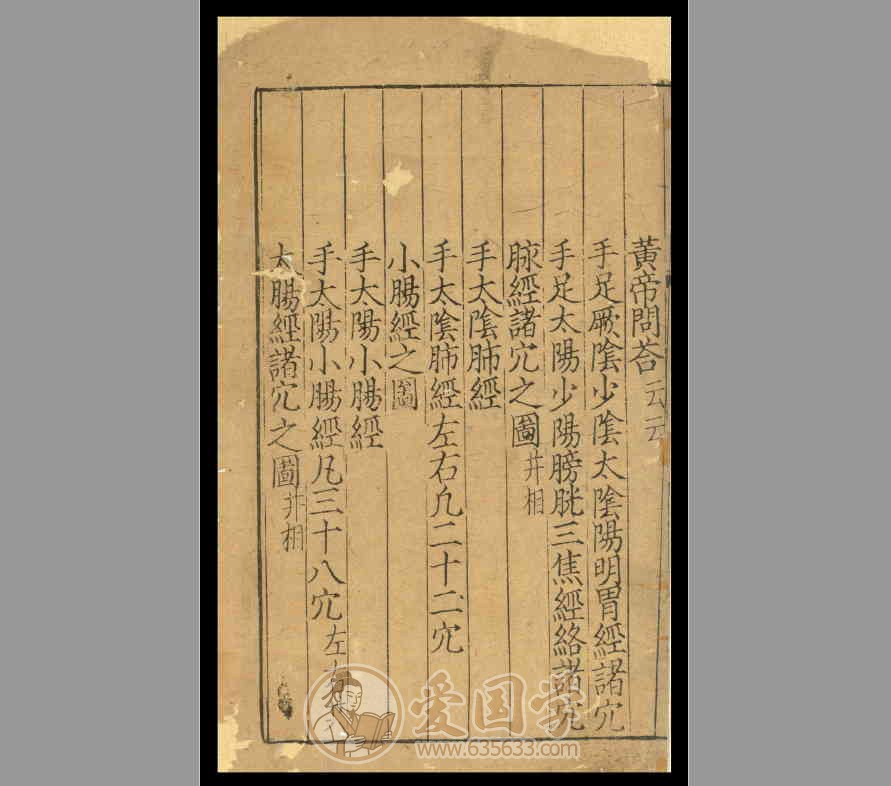 黃帝問荅云云
手足厥陰少陰太陰陽明胃經諸穴
手足太陽少陽膀胱三焦經絡諸穴
脉經諸穴之圖并相
手太陰肺經
手太陰肺經左右凡二十二穴
小腸經之圖
手太陽小腸經
手太陽小腸經凡三十八穴左右
太腸經諸穴之圖并相
爱国学
www.635633.com